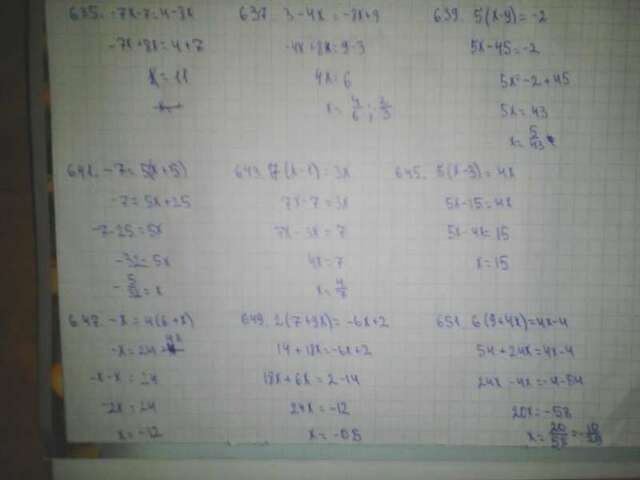 635. -7x-7=4-8x
-7x+8x=4+7
x=11
637. 3-4x=-8x+9
-4x+8x=9-3
4x=6
x=4/6; 2/3
639. 5(x-9)=-2
5x-45=-2
5x=-2+45
5x=43
x=5/43
641. -7=5(x+5)
-7=5x+25
-7-25=5x
-32=5x
-5/32=x
643. 7(x-1)=3x
7x-7=3x
7x-3x=7
4x=7
x=4/7
645. 5(x-3)=4x
5x-15=4x
5x-4x=15
x=15
647. -x=4(6+x)
-x=24 4x
-x-x=24
-2x=24
x=-12
649. 2(7+9x)=-6x+2
14+18x=-6x+2
18x+6x=2-14
24x=-12
x=-0.5
651. 6(9+4x)=4x-4
54+24x=4x-4
24x-4x=-4-54
20x=-58
x=20/58=-10/29